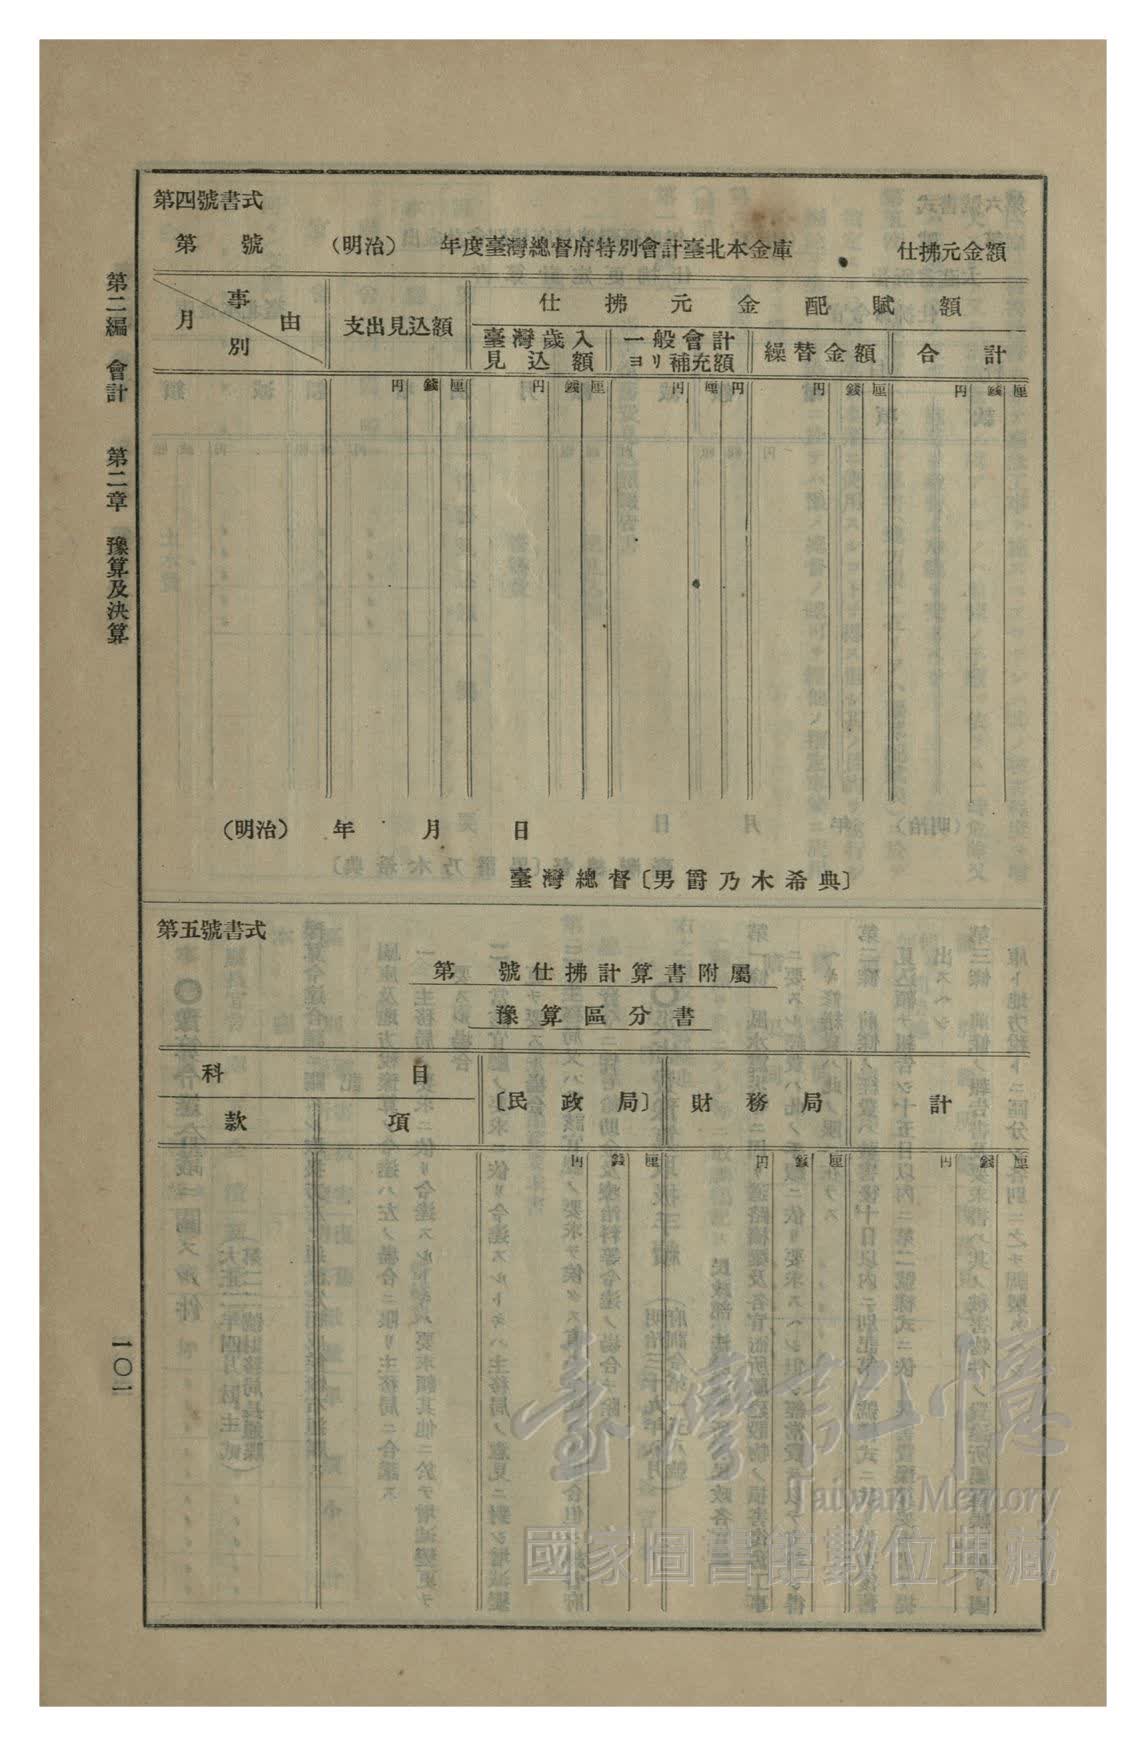 第四號書式
第　號　（明治）　年度臺灣總督府特別會計臺北本金庫　仕拂元金額
事由
月別
支出見込額
仕拂元金配賦額
臺灣歲入見込額
一般會計ヨリ補充額
繰替金額
合計
円 錢 厘 円 錢 厘 円 厘 円 円 錢 厘 円 錢 厘
（明治）　年　月　日
臺灣總督〔男爵乃木希典〕
第五號書式
第　號仕拂計算書附屬
豫算區分書
科目
款　項
〔民政局〕
財務局
計
円 錢 厘 円 錢 厘 円 錢 厘
第二編　會計　第二章　豫算及決算
一〇一
臺灣記憶
Taiwan Memory
國家圖書館數位典藏